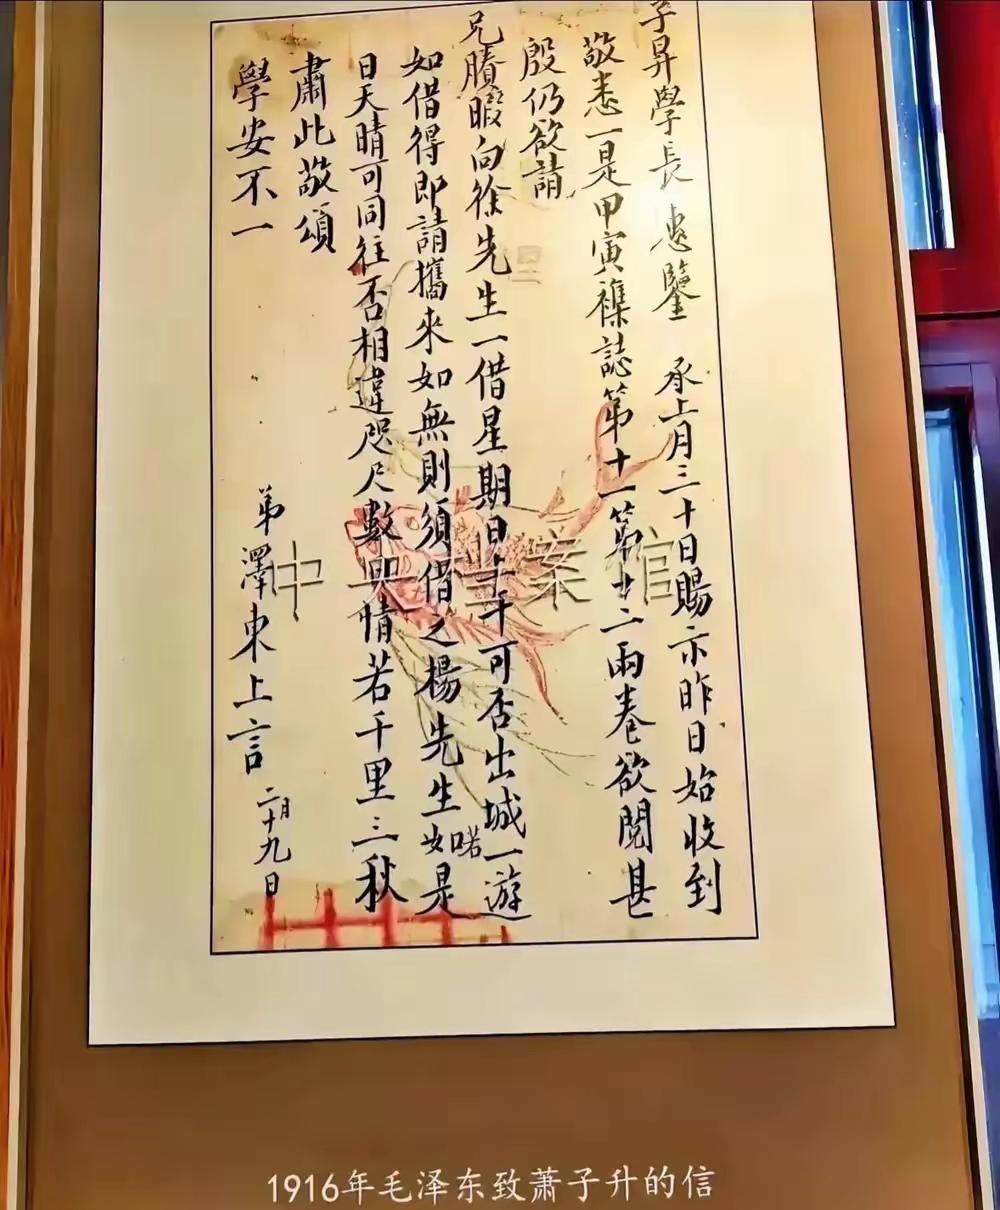 子昇學長 惠鑒 承上月三十日賜示昨日始收到
敬悉一是甲寅襍誌第十一第十二兩卷欲閱甚
殷仍欲請
兄賸暇向徐先生一借星期日上午可否出城一遊
如借得即請攜來如無則須借之楊先生如喏是
日天晴可同往否相違咫尺數日情若千里三秋
肅此敬頌
學安不一
弟澤東上言 二月十九日
中央檔案館
1916年毛泽东致萧子升的信